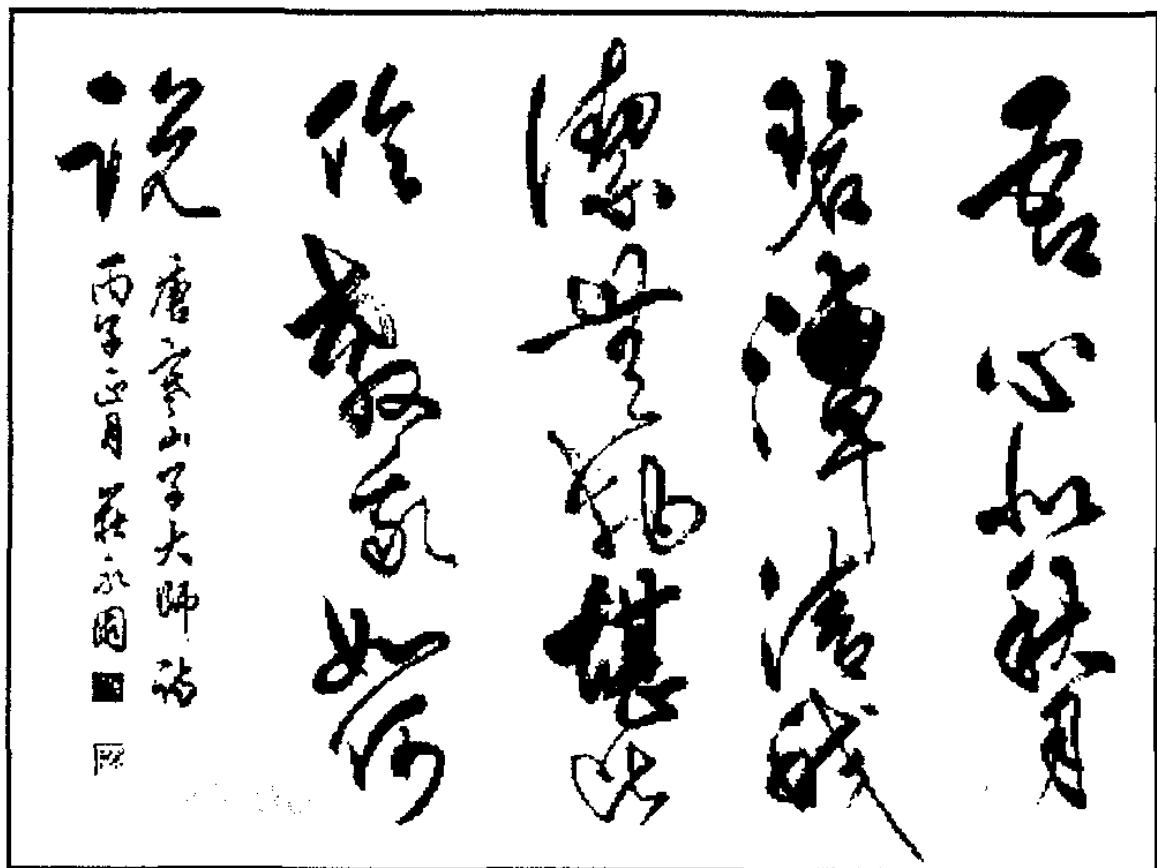 吾心似秋月
碧潭清皎
潔無物堪比
倫教我如何
說
唐寒山子大師詩
丙子 月 永